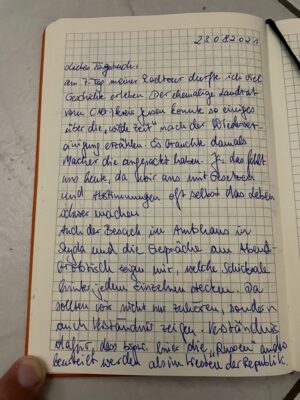 23.08.2021
liebes Tagebuch,
am 7. Tag meiner Radtour durfte ich viel
Geschichte erleben. Der ehemalige Landrat
vom Kreis Jessen konnte so einiges
über die "wilde Zeit" nach der Wiederver-
einigung erzählen. Es brauchte damals
Macher die angepackt haben. Ja, das fehlt
uns heute, da wir uns mit Gesetzen
und Abstimmungen oft selbst das Leben
schwer machen
Auch der Besuch im Amtshaus in
Seyda und die Gespräche am Abend-
brottisch zeigen mir, welche Schicksale
hinter jedem Einzelnen stecken. Da
sollten wir nicht nur zuhören, sondern
auch Verständnis zeigen. Verständnis
dafür, dass hier die "Russen" anders
beurteilt werden als im Westen der Republik.